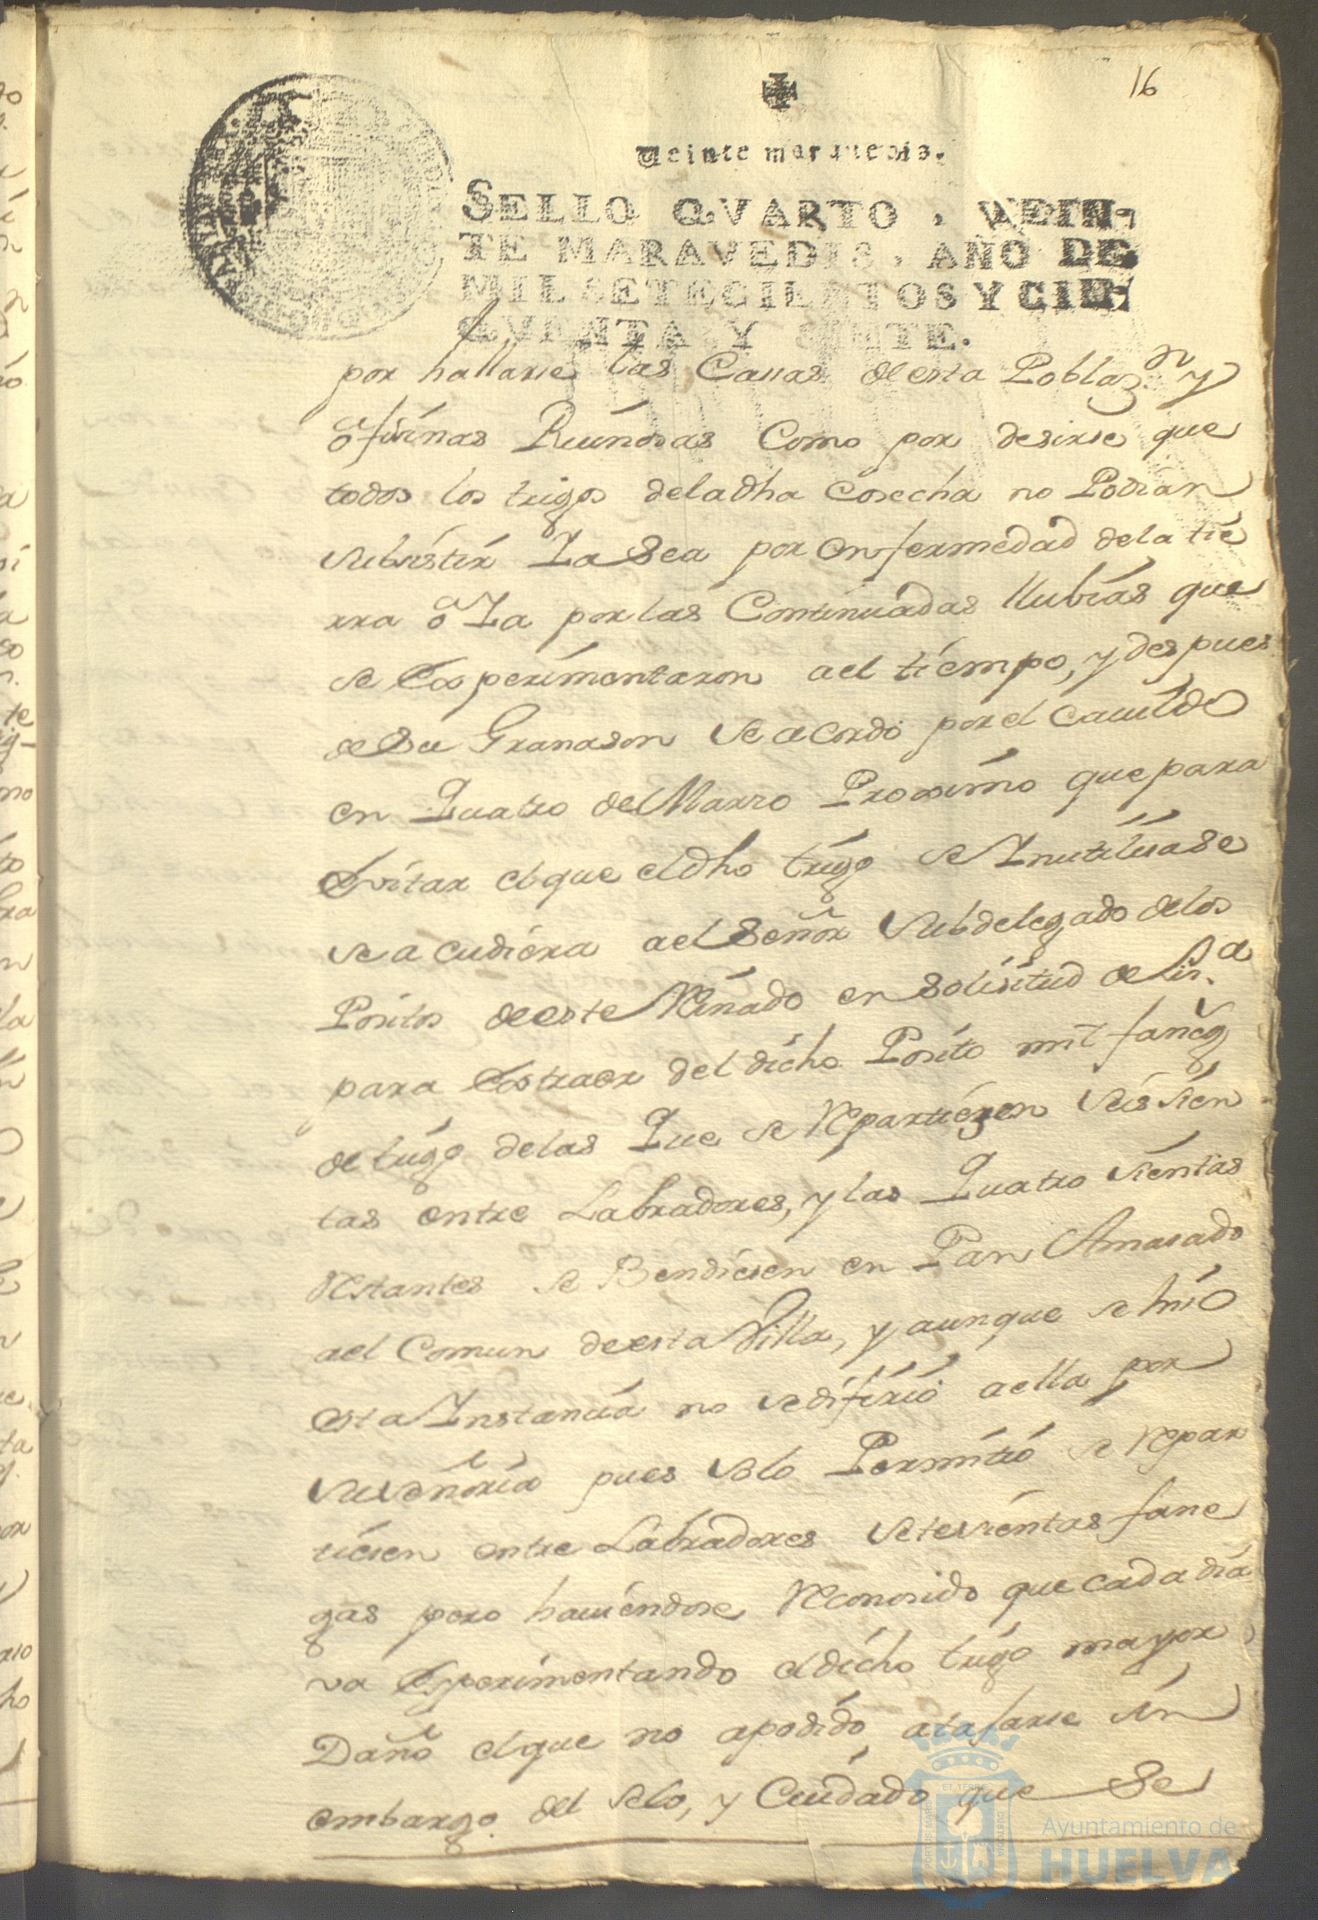 16
Veinte maravedis.
SELLO QVARTO, VEIN-
TE MARAVEDIS, AÑO DE
MIL SETECIENTOS Y CIN-
QVENTA Y SIETE.
por hallarse las Casas de esta Poblaz.on y
ofisinas Ruinosas Como por desirse que
todos los trigos deladha Cosecha no Podian
subsistir Ya Sea por enfermedad dela tie
rra ô Ya por las Continuadas llubias que
se Experimentaron ael tiempo, y despues
de Su Granason se acordó por el Cauildo
en Quatro de Marzo Proximo que para
Evitar el que eldho trigo se Inutilisase
se acudiera ael Señor Subdelegado delos
Positos de este Reinado en Solisitud de lis.a
para Extraer del dicho Posito mil faneg
de trigo delas Que se Repartiesen seis sien
tas entre Labradores, y las Quatro sientas
Restantes se Bendiesen en Pan Amasado
ael Comun de esta Villa, y aunque se hiso
esta Instancia no se difirió a ella por
su señoria pues solo Permitió se Repar
tiesen entre Labradores setesientas fane
gas pero haviendose Reconosido que cada dia
va Experimentando el dicho trigo mayor
Daño el que no apodido atajarse sin
embargo del selo, y Cuidado que Se
Ayuntamiento de
HUELVA